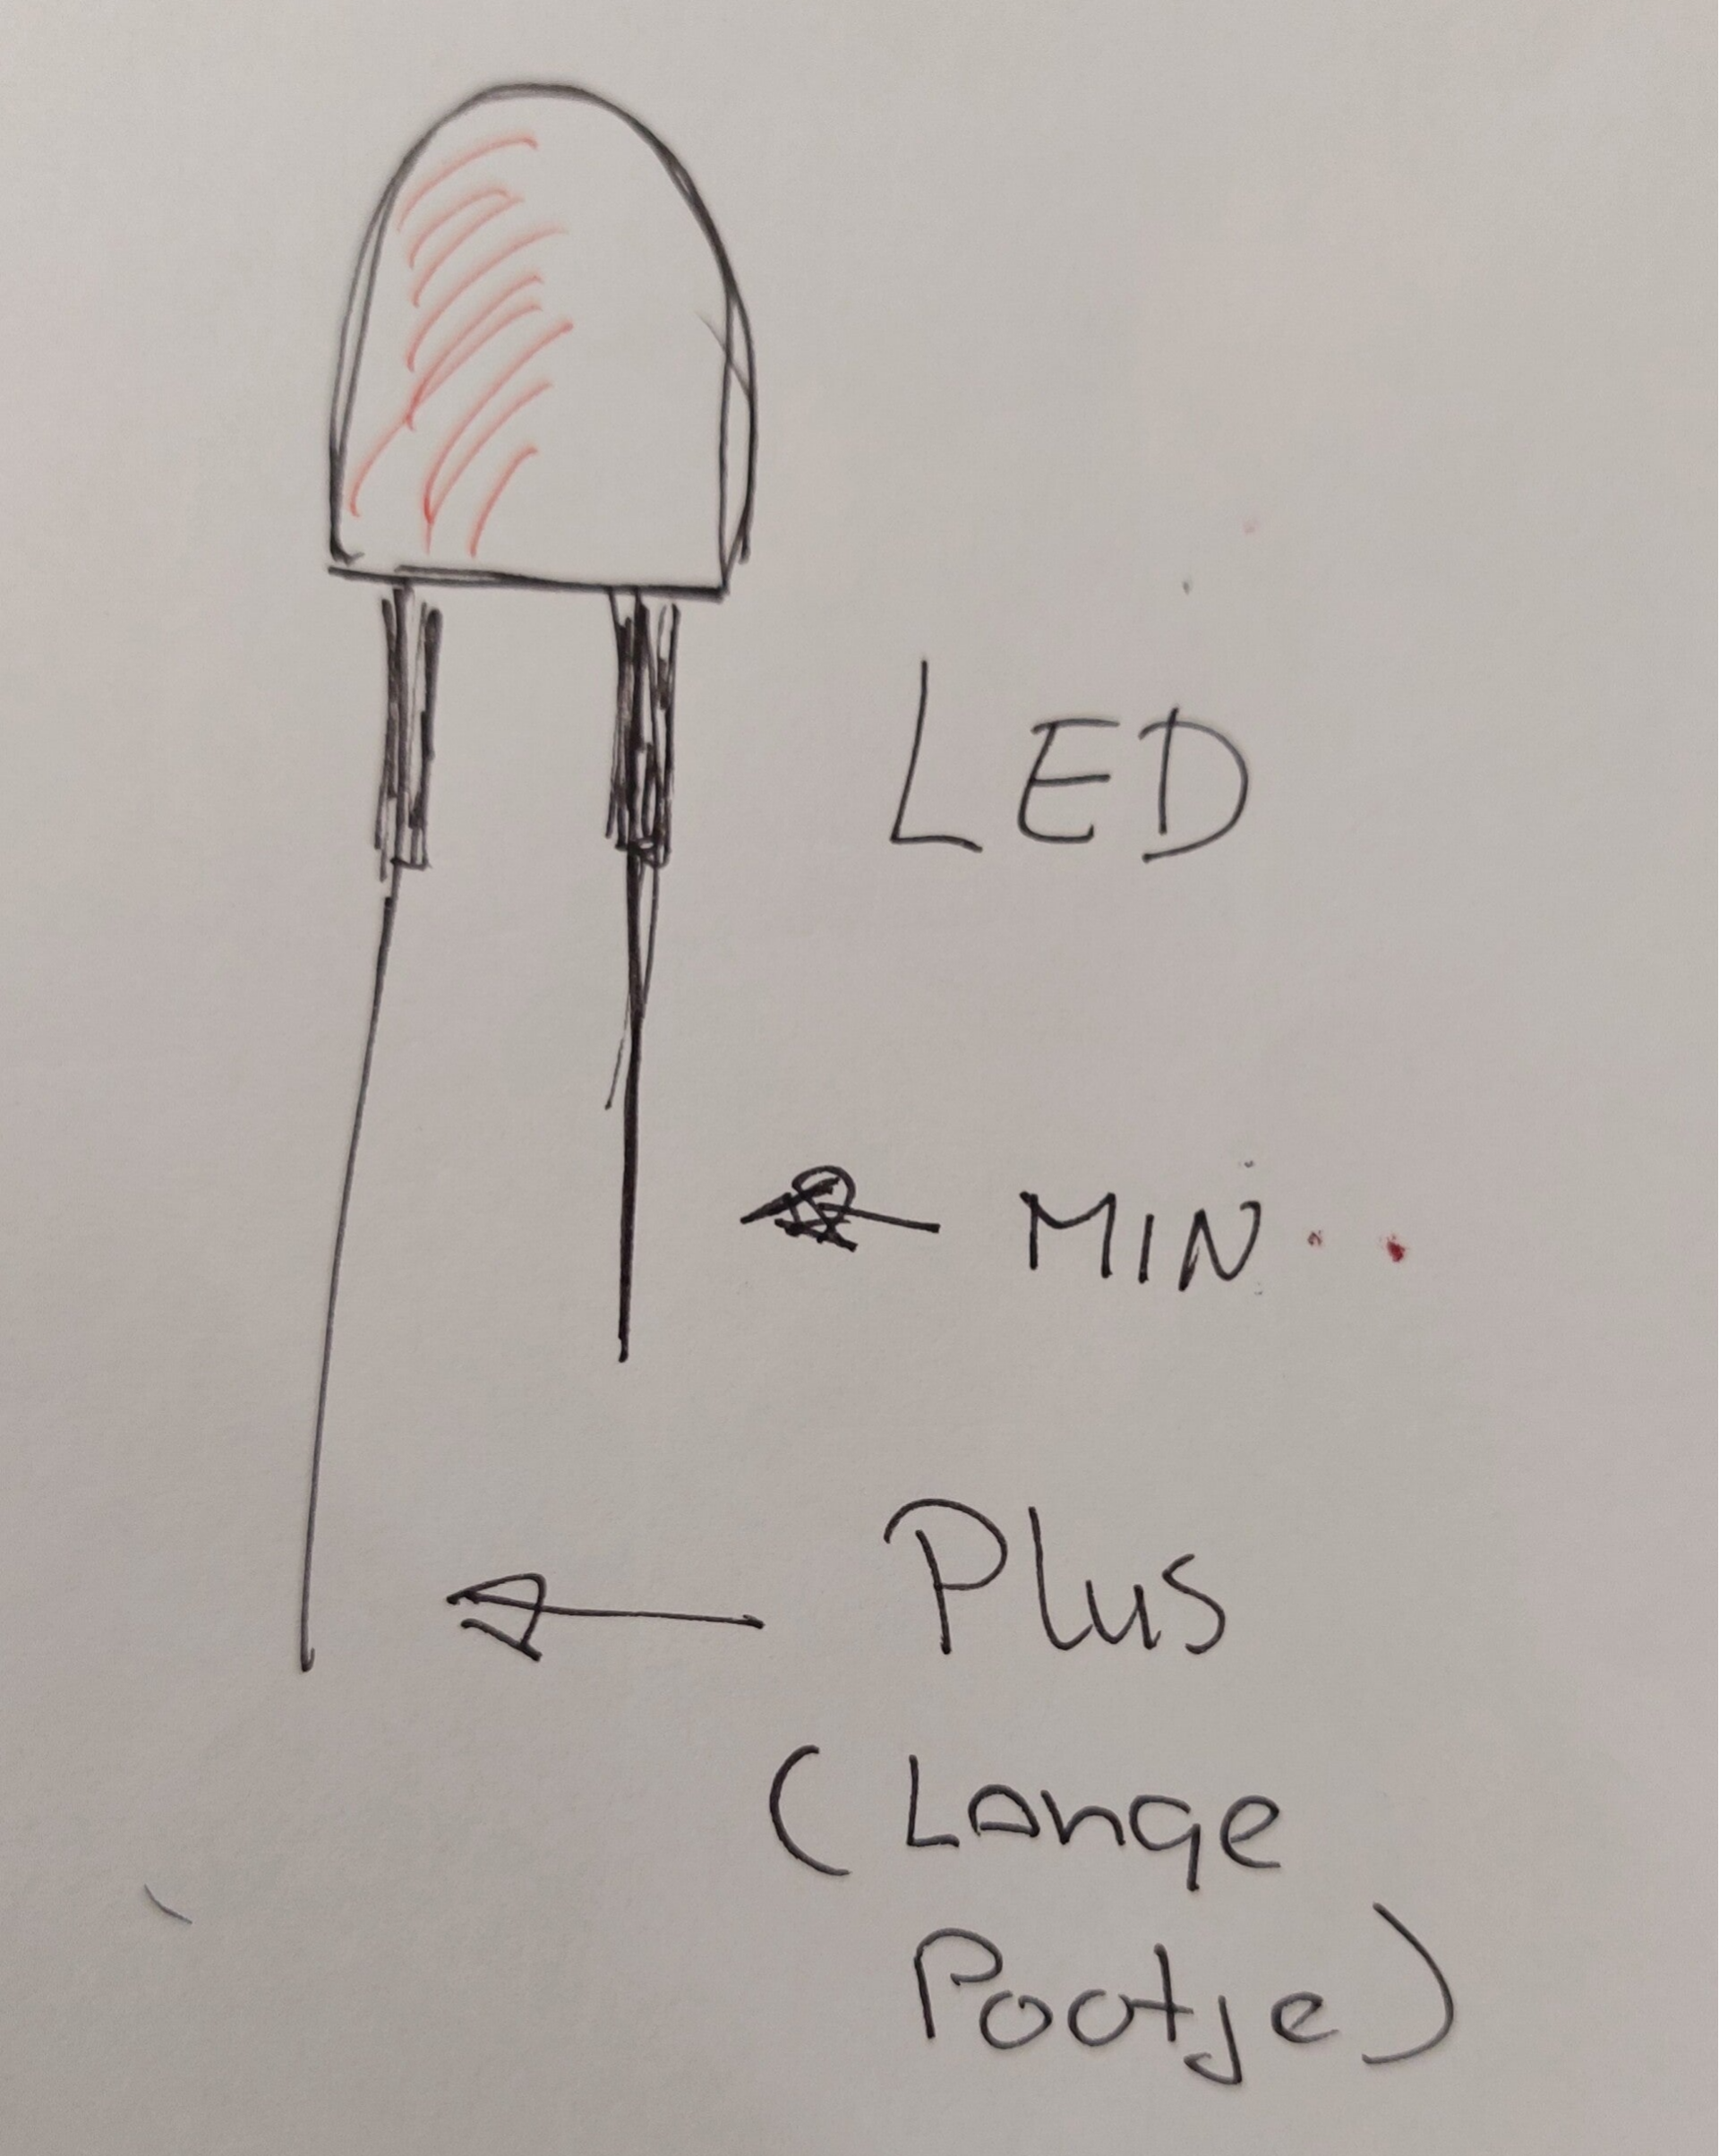 LED
MIN
Plus
(Lange
Pootje)